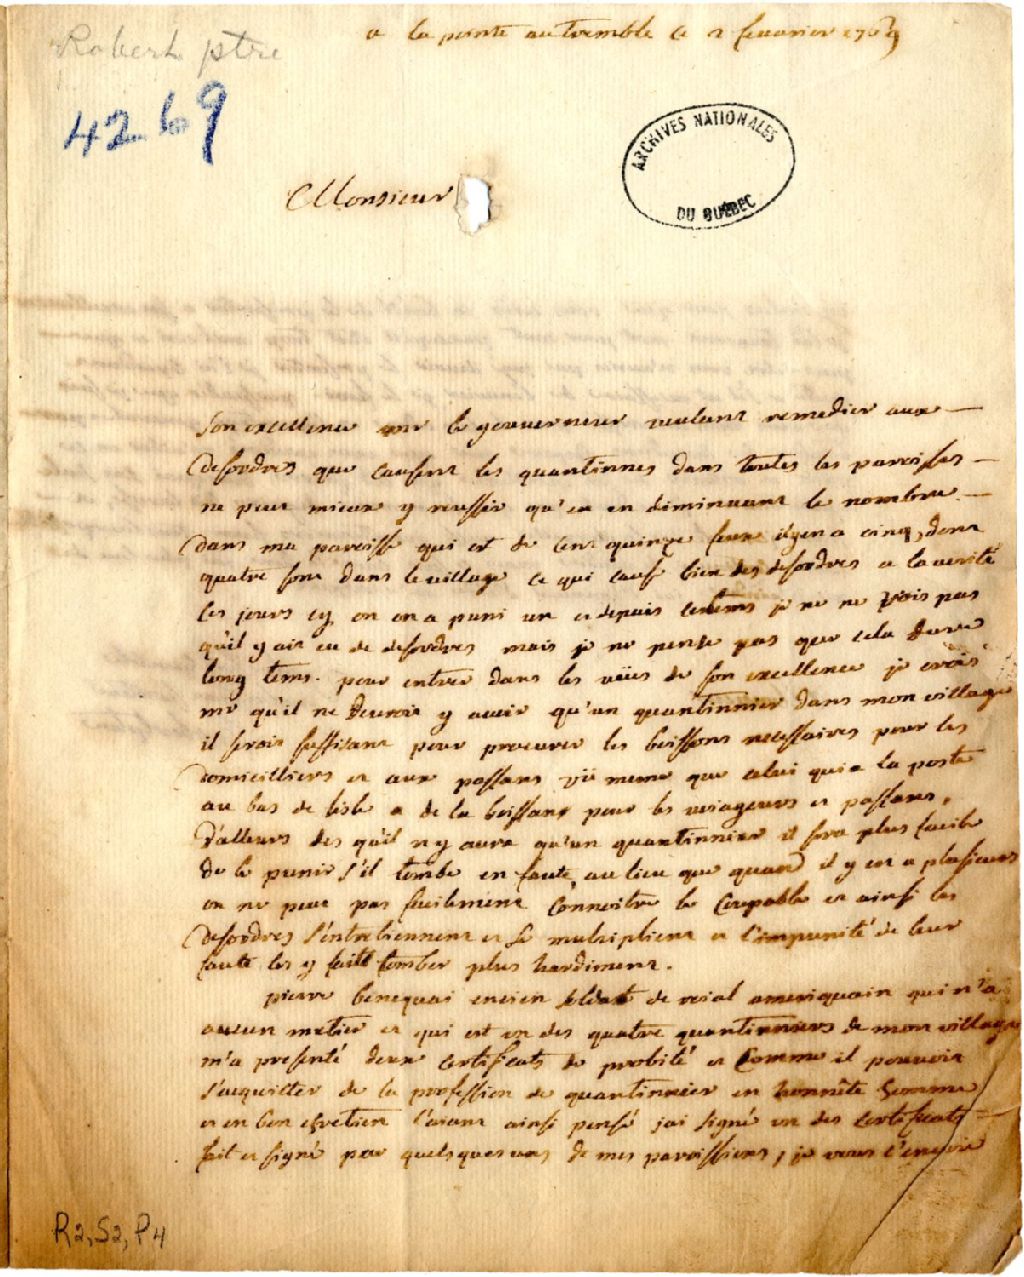 Robert ptre
a la pointe au tremble ce 2 feuvrier 1769
4269
ARCHIVES NATIONALES
DU QUÉBEC
Monsieur
son excellence mr le gouverneur voulant remedier aux
desordres que causent les quantinnes dans toutes les paroisses
ne peut mieux y reussir qu'en en diminuant le nombre
dans ma paroisse qui est de cent quinze feux il y en a cinq, dont
quatre sont dans le village ce qui cause bien des desordres a la verité
ces jours cy on en a puni un et depuis ce tems je ne ne vois pas
qu'il y ait eu de desordres mais je ne pense pas que cela dure
long tems. pour entrer dans les vües de son excellence je crois
mr qu'il ne devroit y avoir qu'un quantinnier dans mon village
il seroit suffisant pour procurer les boissons necessaires pour les
domicilliers et aux passans vü meme que celui qui a la poste
au bas de l'isle a de la boisson pour les voiageurs et passans,
d'alleurs des qu'il n'y aura qu'un quantinnier il sera plus facile
de le punir s'il tombe en faute, au lieu que quand il y en a plusieurs
on ne peut pas facilement connoitre le coupable et ainsi les
desordres s'entretiennent et se multiplient et l'impunité de leur
faute les y faitt tomber plus hardiment.
pierre benequai encien soldat de roial ameriquain qui n'a
aucun metier et qui est un des quatre quantinniers de mon village
m'a presenté deux certificats de probité et comme il pouvoit
s'acquitter de la profession de quantinnier en honnête homme
et en bon chretien l'aiant ainsi pensé j'ai signé un des certificats
fait et signé par quelques uns de mes paroissiens, je vous l'envoie
R2, S2, P4